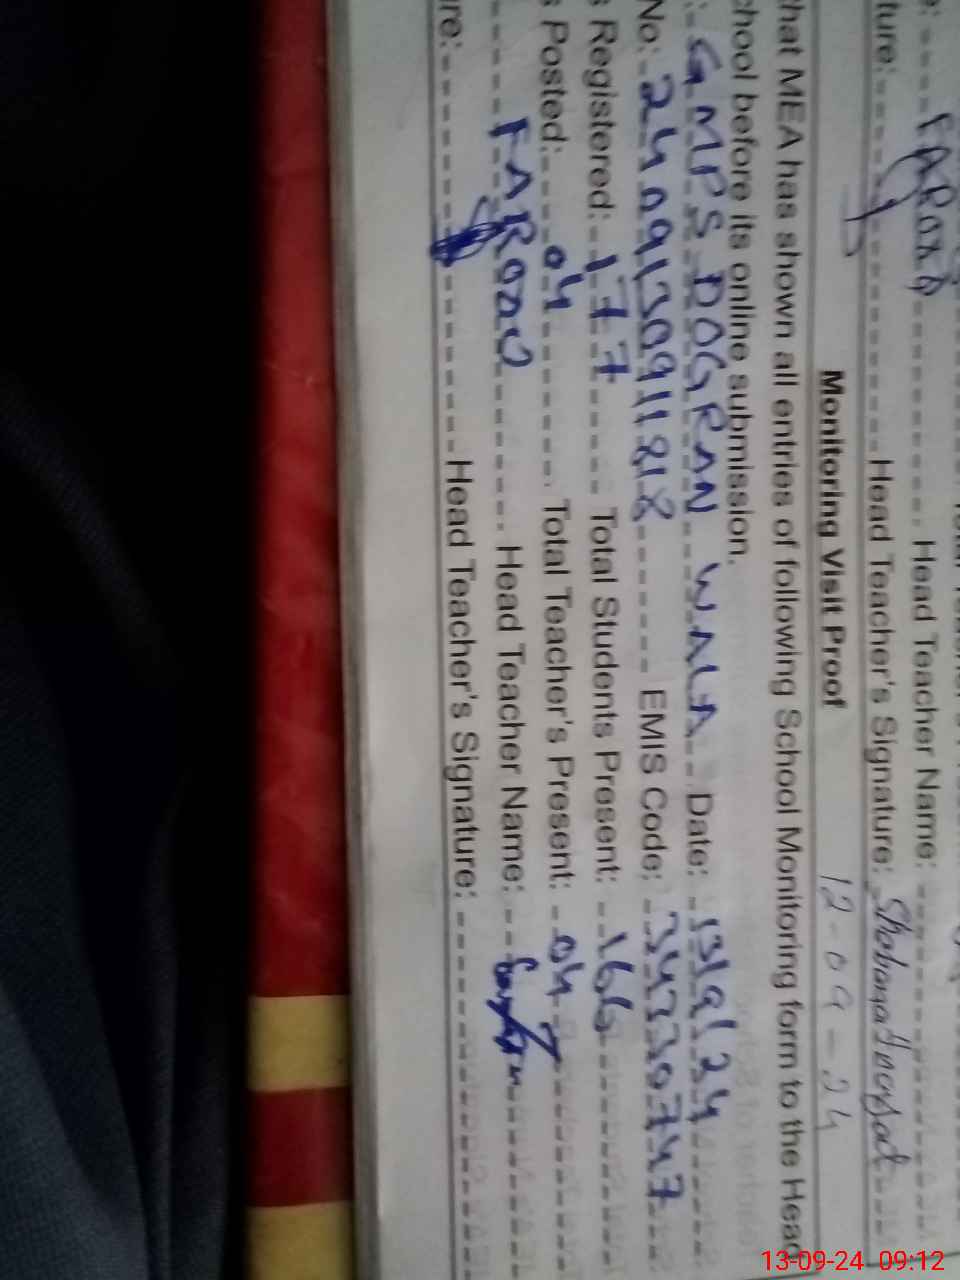 FAROOQ Head Teacher Name:
ture: Head Teacher's Signature: Shabana
Monitoring Visit Proof 12-09-24
that MEA has shown all entries of following School Monitoring form to the Head
chool before its online submission.
: GMPS DOGRAN WALA Date: 13/9/24
No: 2409130911818 EMIS Code: 34330747
s Registered: 177 Total Students Present: 166
s Posted: 04 Total Teacher's Present: 04
FAROOQ Head Teacher Name:
ure: Head Teacher's Signature:
13-09-24 09:12